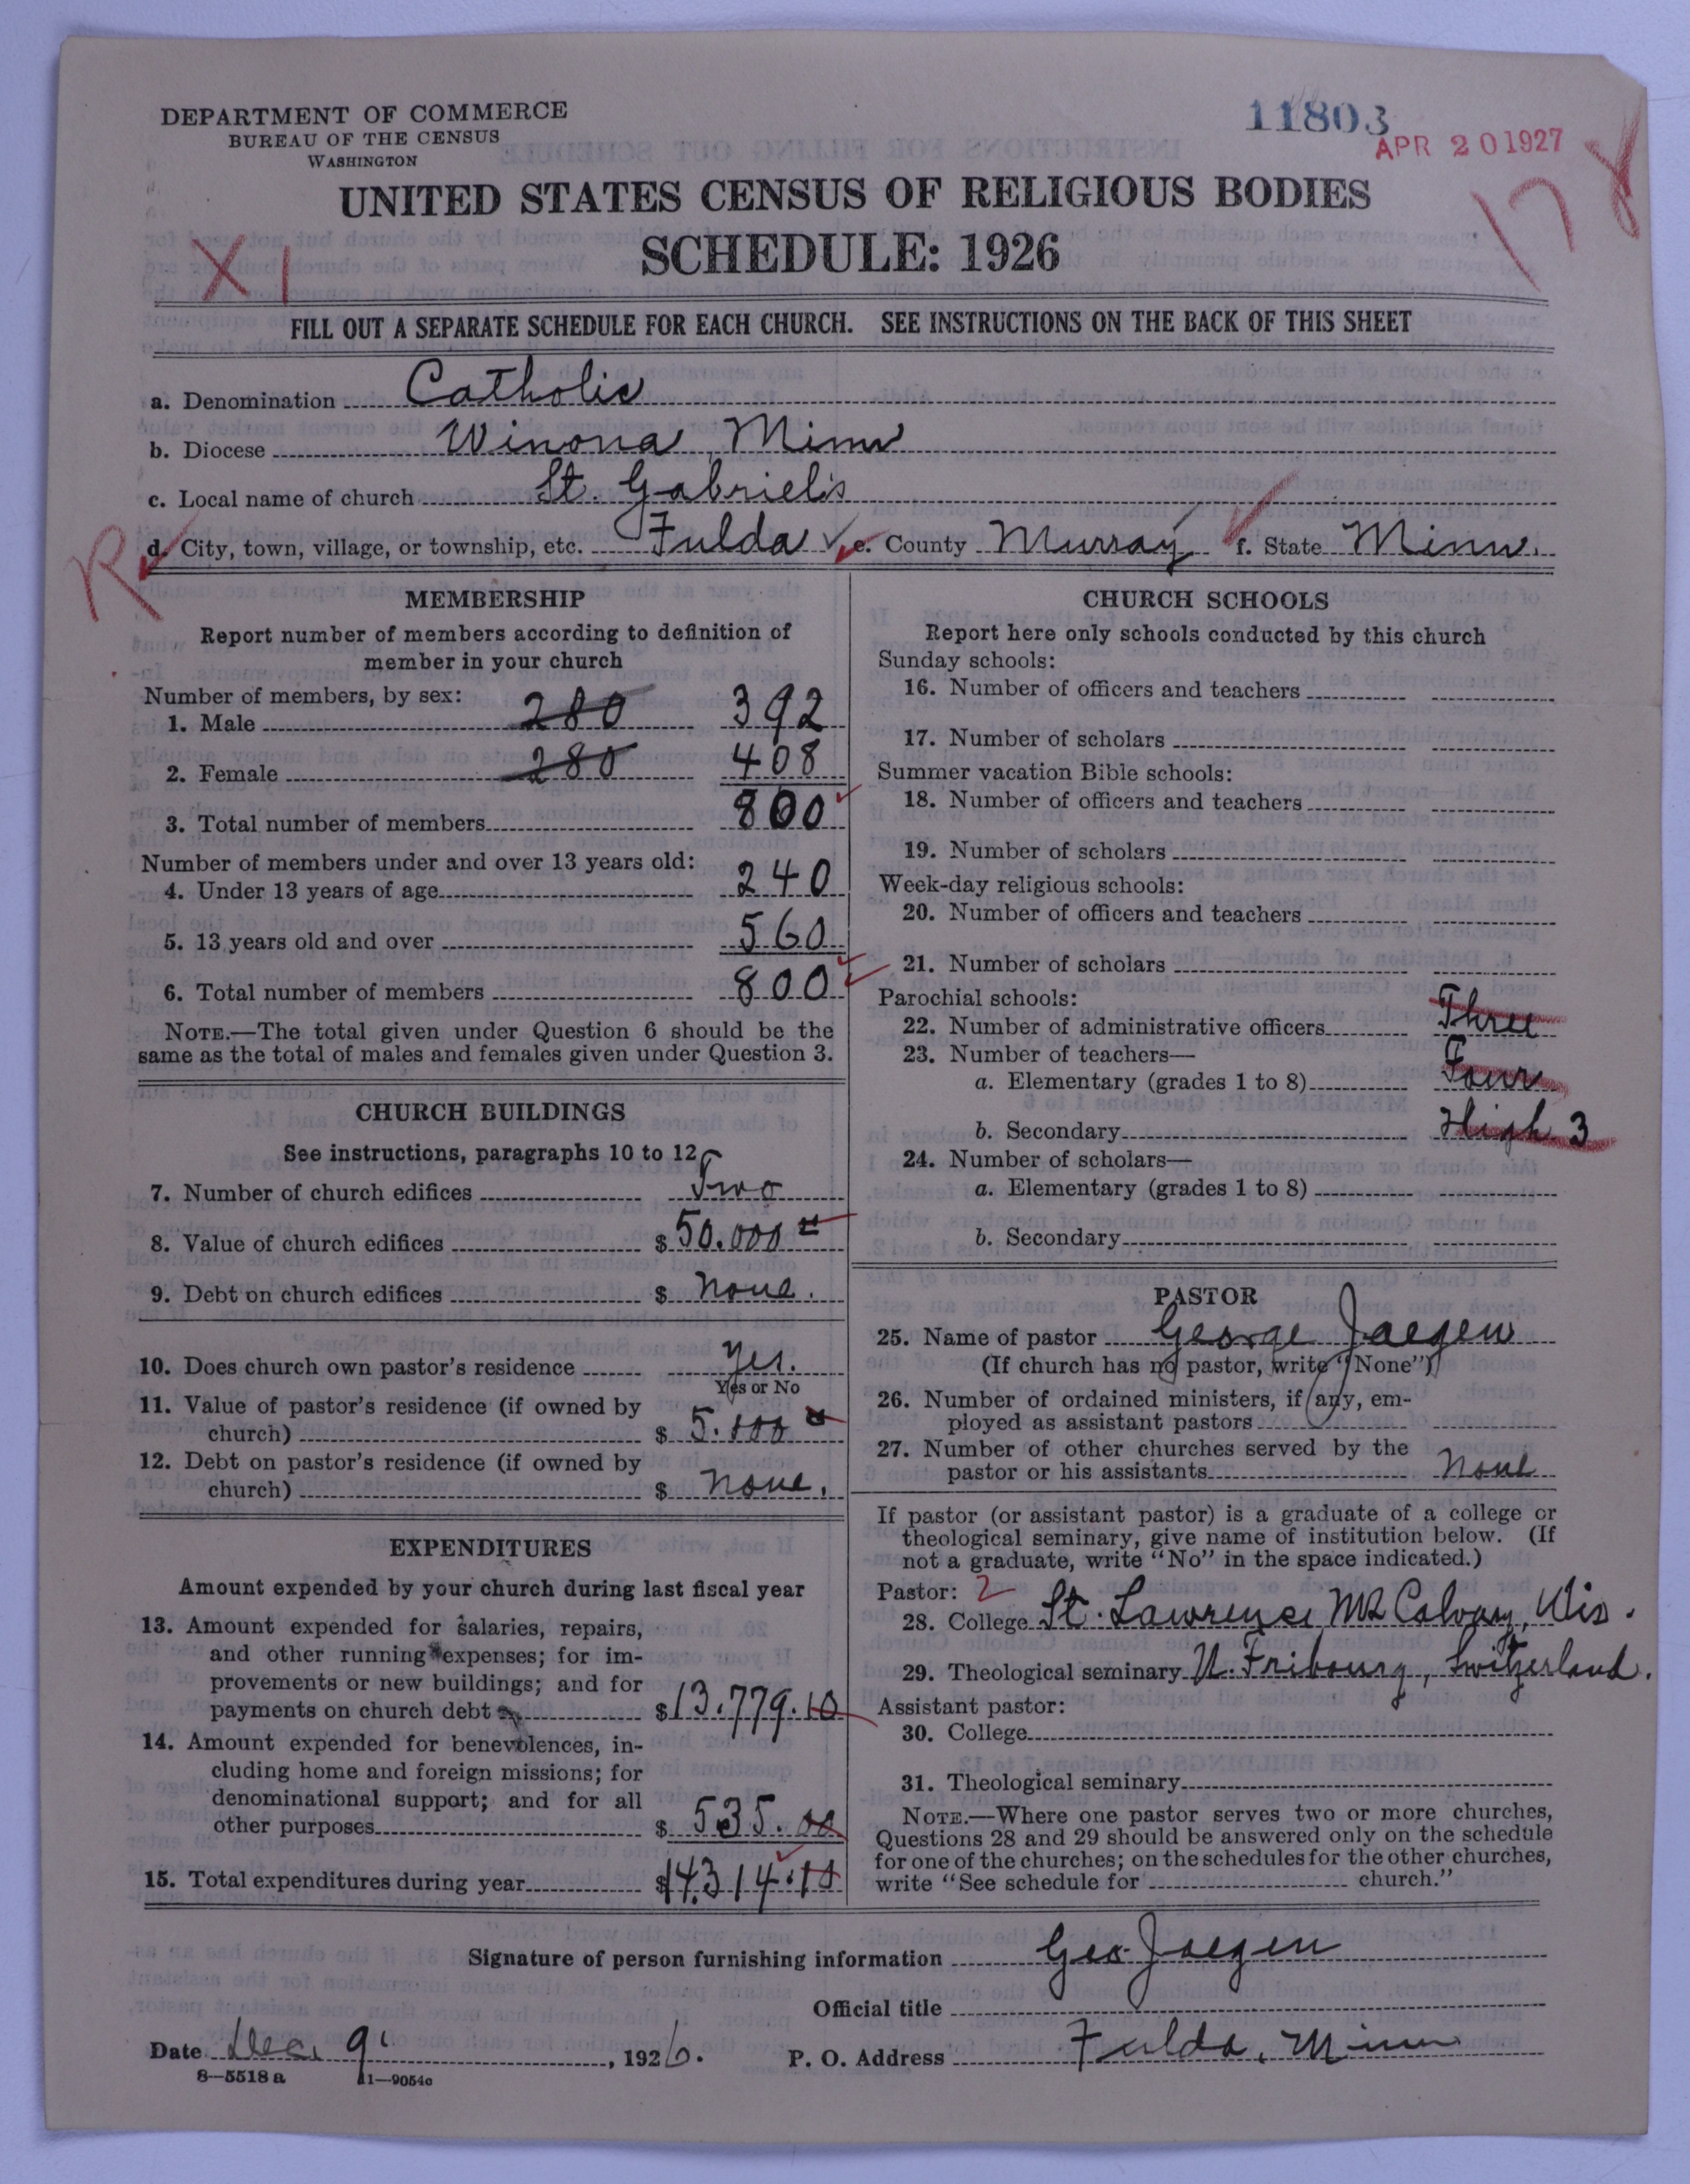 DEPARTMENT OF COMMERCE
BUREAU OF THE CENSUS
WASHINGTON
11803
APR 20 1927
178
UNITED STATES CENSUS OF RELIGIOUS BODIES
SCHEDULE: 1926
XI
FILL OUT A SEPARATE SCHEDULE FOR EACH CHURCH. SEE INSTRUCTIONS ON THE BACK OF THIS SHEET
a. Denomination Catholic
b. Diocese Winona Minn
c. Local name of church St. Gabriel's
R
d. City, town, village, or township, etc. Fulda e. County Murray f. State Minn.
MEMBERSHIP
Report number of members according to definition of
member in your church
Number of members, by sex:
1. Male 280 392
2. Female 280 408
3. Total number of members 800
Number of members under and over 13 years old:
4. Under 13 years of age 240
5. 13 years old and over 560
6. Total number of members 800
NOTE.—The total given under Question 6 should be the
same as the total of males and females given under Question 3.
CHURCH BUILDINGS
See instructions, paragraphs 10 to 12
7. Number of church edifices Two
8. Value of church edifices $ 50.000
9. Debt on church edifices $ none.
10. Does church own pastor's residence yes.
Yes or No
11. Value of pastor's residence (if owned by
church) $ 5.000
12. Debt on pastor's residence (if owned by
church) $ none.
EXPENDITURES
Amount expended by your church during last fiscal year
13. Amount expended for salaries, repairs,
and other running expenses; for im-
provements or new buildings; and for
payments on church debt $ 13.779.10
14. Amount expended for benevolences, in-
cluding home and foreign missions; for
denominational support; and for all
other purposes $ 535.00
15. Total expenditures during year $ 14.314.10
CHURCH SCHOOLS
Report here only schools conducted by this church
Sunday schools:
16. Number of officers and teachers
17. Number of scholars
Summer vacation Bible schools:
18. Number of officers and teachers
19. Number of scholars
Week-day religious schools:
20. Number of officers and teachers
21. Number of scholars
Parochial schools:
22. Number of administrative officers Three
23. Number of teachers—
a. Elementary (grades 1 to 8) Four
b. Secondary High 3
24. Number of scholars—
a. Elementary (grades 1 to 8)
b. Secondary
PASTOR
25. Name of pastor George Jaegen
(If church has no pastor, write "None")
26. Number of ordained ministers, if any, em-
ployed as assistant pastors
27. Number of other churches served by the
pastor or his assistants none
If pastor (or assistant pastor) is a graduate of a college or
theological seminary, give name of institution below. (If
not a graduate, write "No" in the space indicated.)
Pastor: 2
28. College St. Lawrence Mt Calvary, Wis.
29. Theological seminary U. Fribourg, Switzerland.
Assistant pastor:
30. College
31. Theological seminary
NOTE.—Where one pastor serves two or more churches,
Questions 28 and 29 should be answered only on the schedule
for one of the churches; on the schedules for the other churches,
write "See schedule for church."
Signature of person furnishing information Geo Jaegen
Official title
Date Dec. 9, 1926. P. O. Address Fulda, Minn
8—5518 a 11—9054c